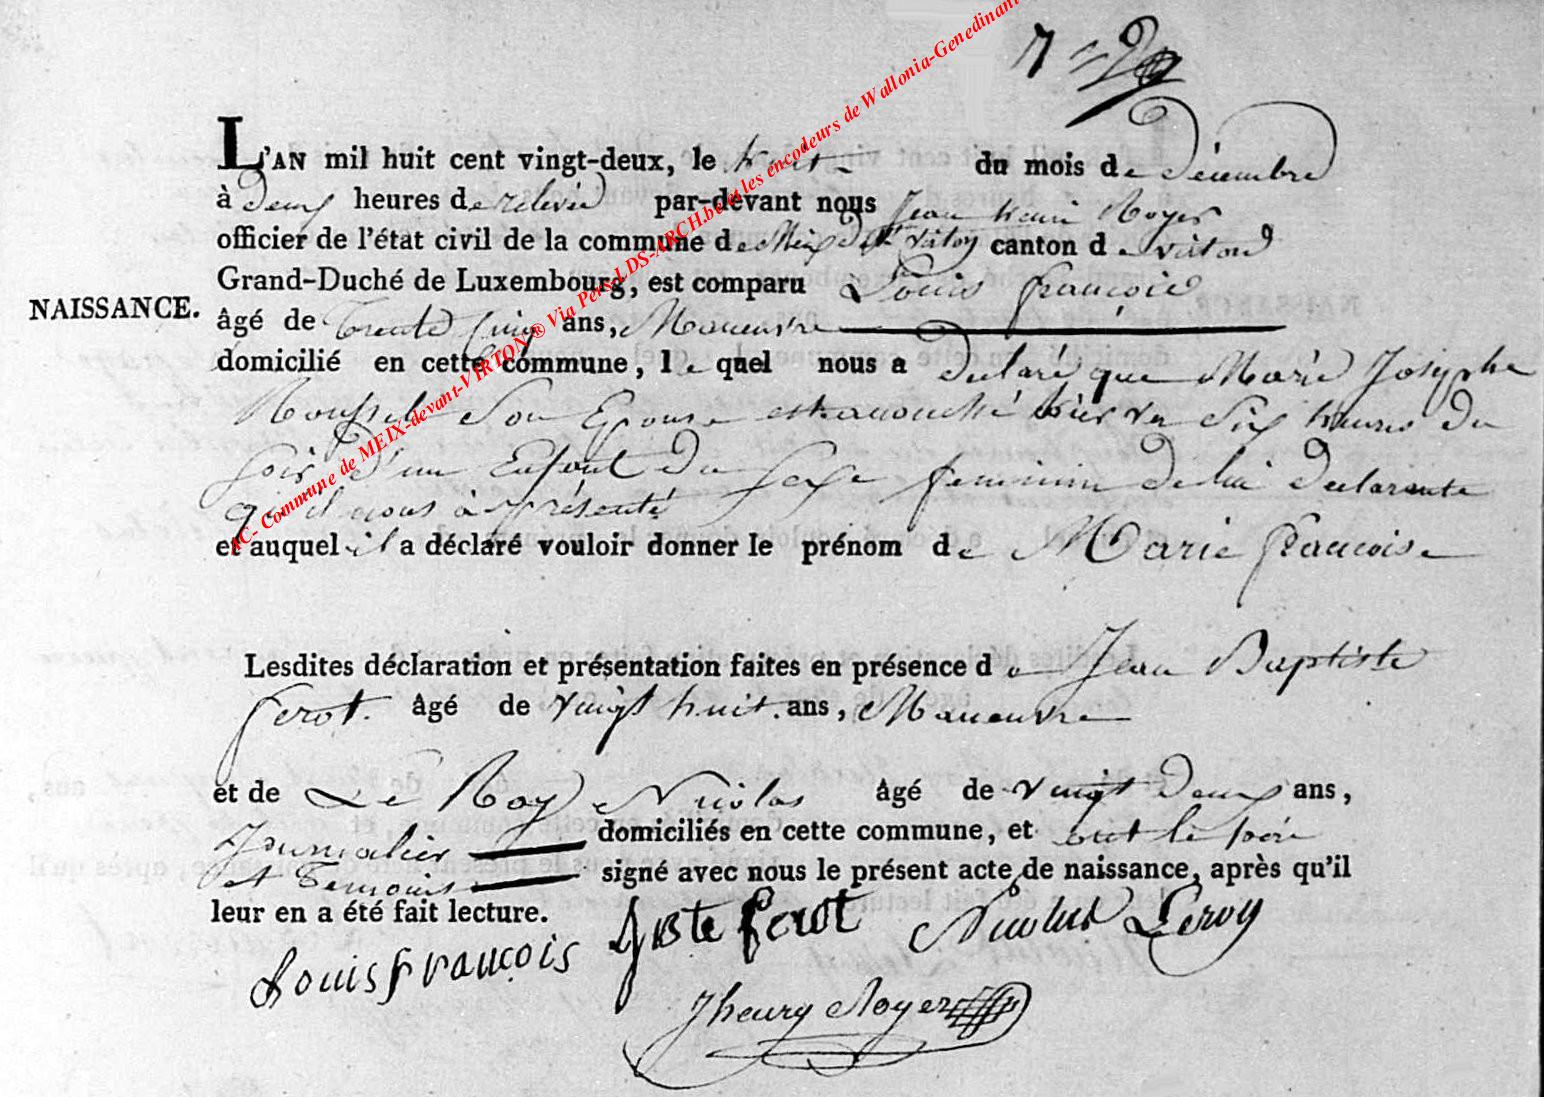 L'AN mil huit cent vingt-deux, le huit du mois de Décembre
à deux heures de relevée par-devant nous Jean henri Royer
officier de l'état civil de la commune de Meix dt Virton canton de virton
Grand-Duché de Luxembourg, est comparu Louis françois
NAISSANCE.
âgé de Trente Cinq ans, Maneuvre
domicilié en cette commune, le quel nous a déclaré que Marie Josephe
son Epouse est acouché hier six heures du
soir d'un Enfant du sexe feminin de lui declarante
qu'il nous à présenté
et auquel il a déclaré vouloir donner le prénom de Marie françoise
Lesdites déclaration et présentation faites en présence de Jean Baptiste
ferot. âgé de vingt huit ans, Maneuvre
et de Le Roy Nicolas âgé de vingt Deux ans,
Journalier domiciliés en cette commune, et ont le père
et temoins signé avec nous le présent acte de naissance, après qu'il
leur en a été fait lecture.
Louis françois JBte ferot Nicolas Leroy
Jhenry Royer
AC- Commune de MEIX-devant-VIRTON ® Via Pers-LDS-ARCH.be et les encodeurs de Wallonia-Genedinant